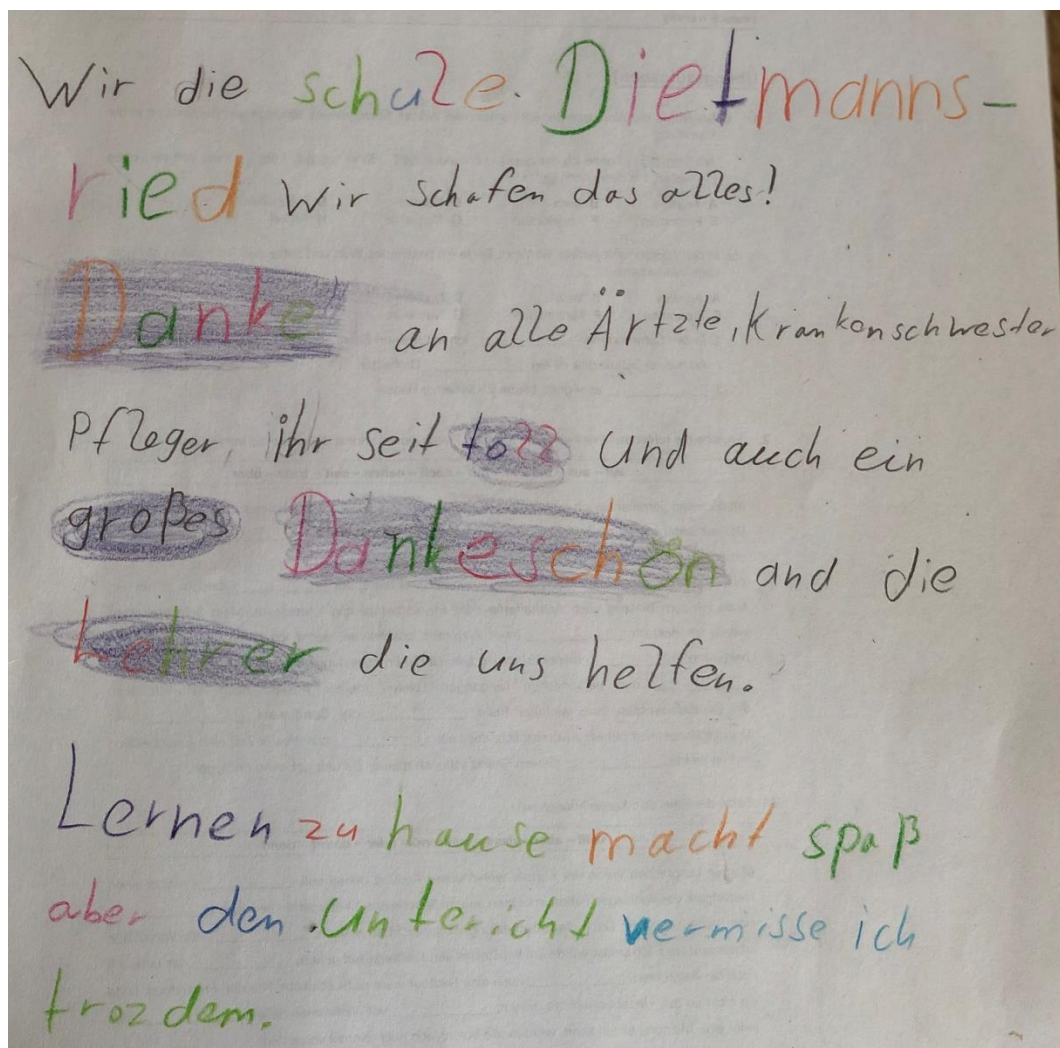 Wir die schule. Dietmanns-
ried wir schafen das alles!
Danke an alle Ärtzte, Krankenschwester
Pfleger, ihr seit toll und auch ein
großes Dankeschön and die
Lehrer die uns helfen.
Lernen zu hause macht spaß
aber den Untericht vermisse ich
trozdem.